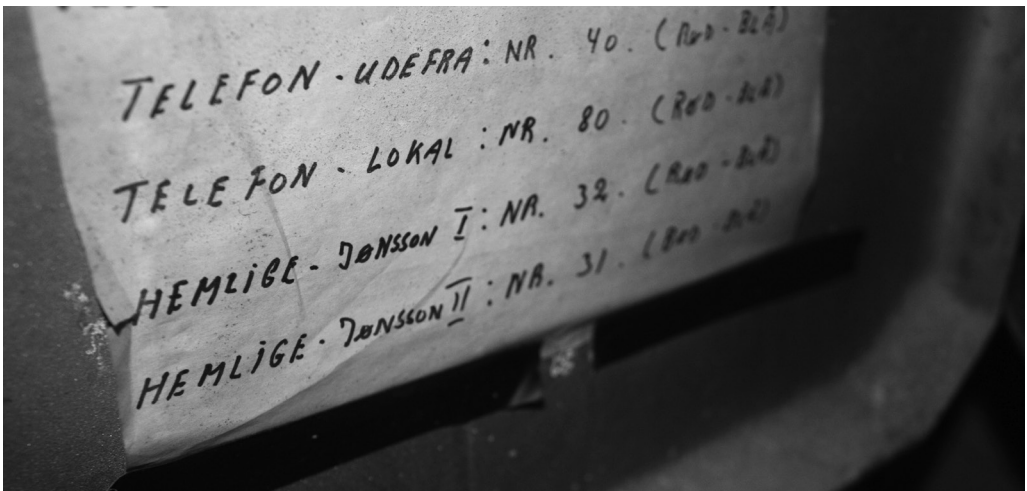 TELEFON - UDEFRA: NR. 40. (RØD - BLÅ)
TELEFON - LOKAL : NR. 80. (RØD - BLÅ)
HEMLIGE - JØNSSON I : NR. 32. (RØD - BLÅ)
HEMLIGE - JØNSSON II : NR. 31. (RØD - BLÅ)